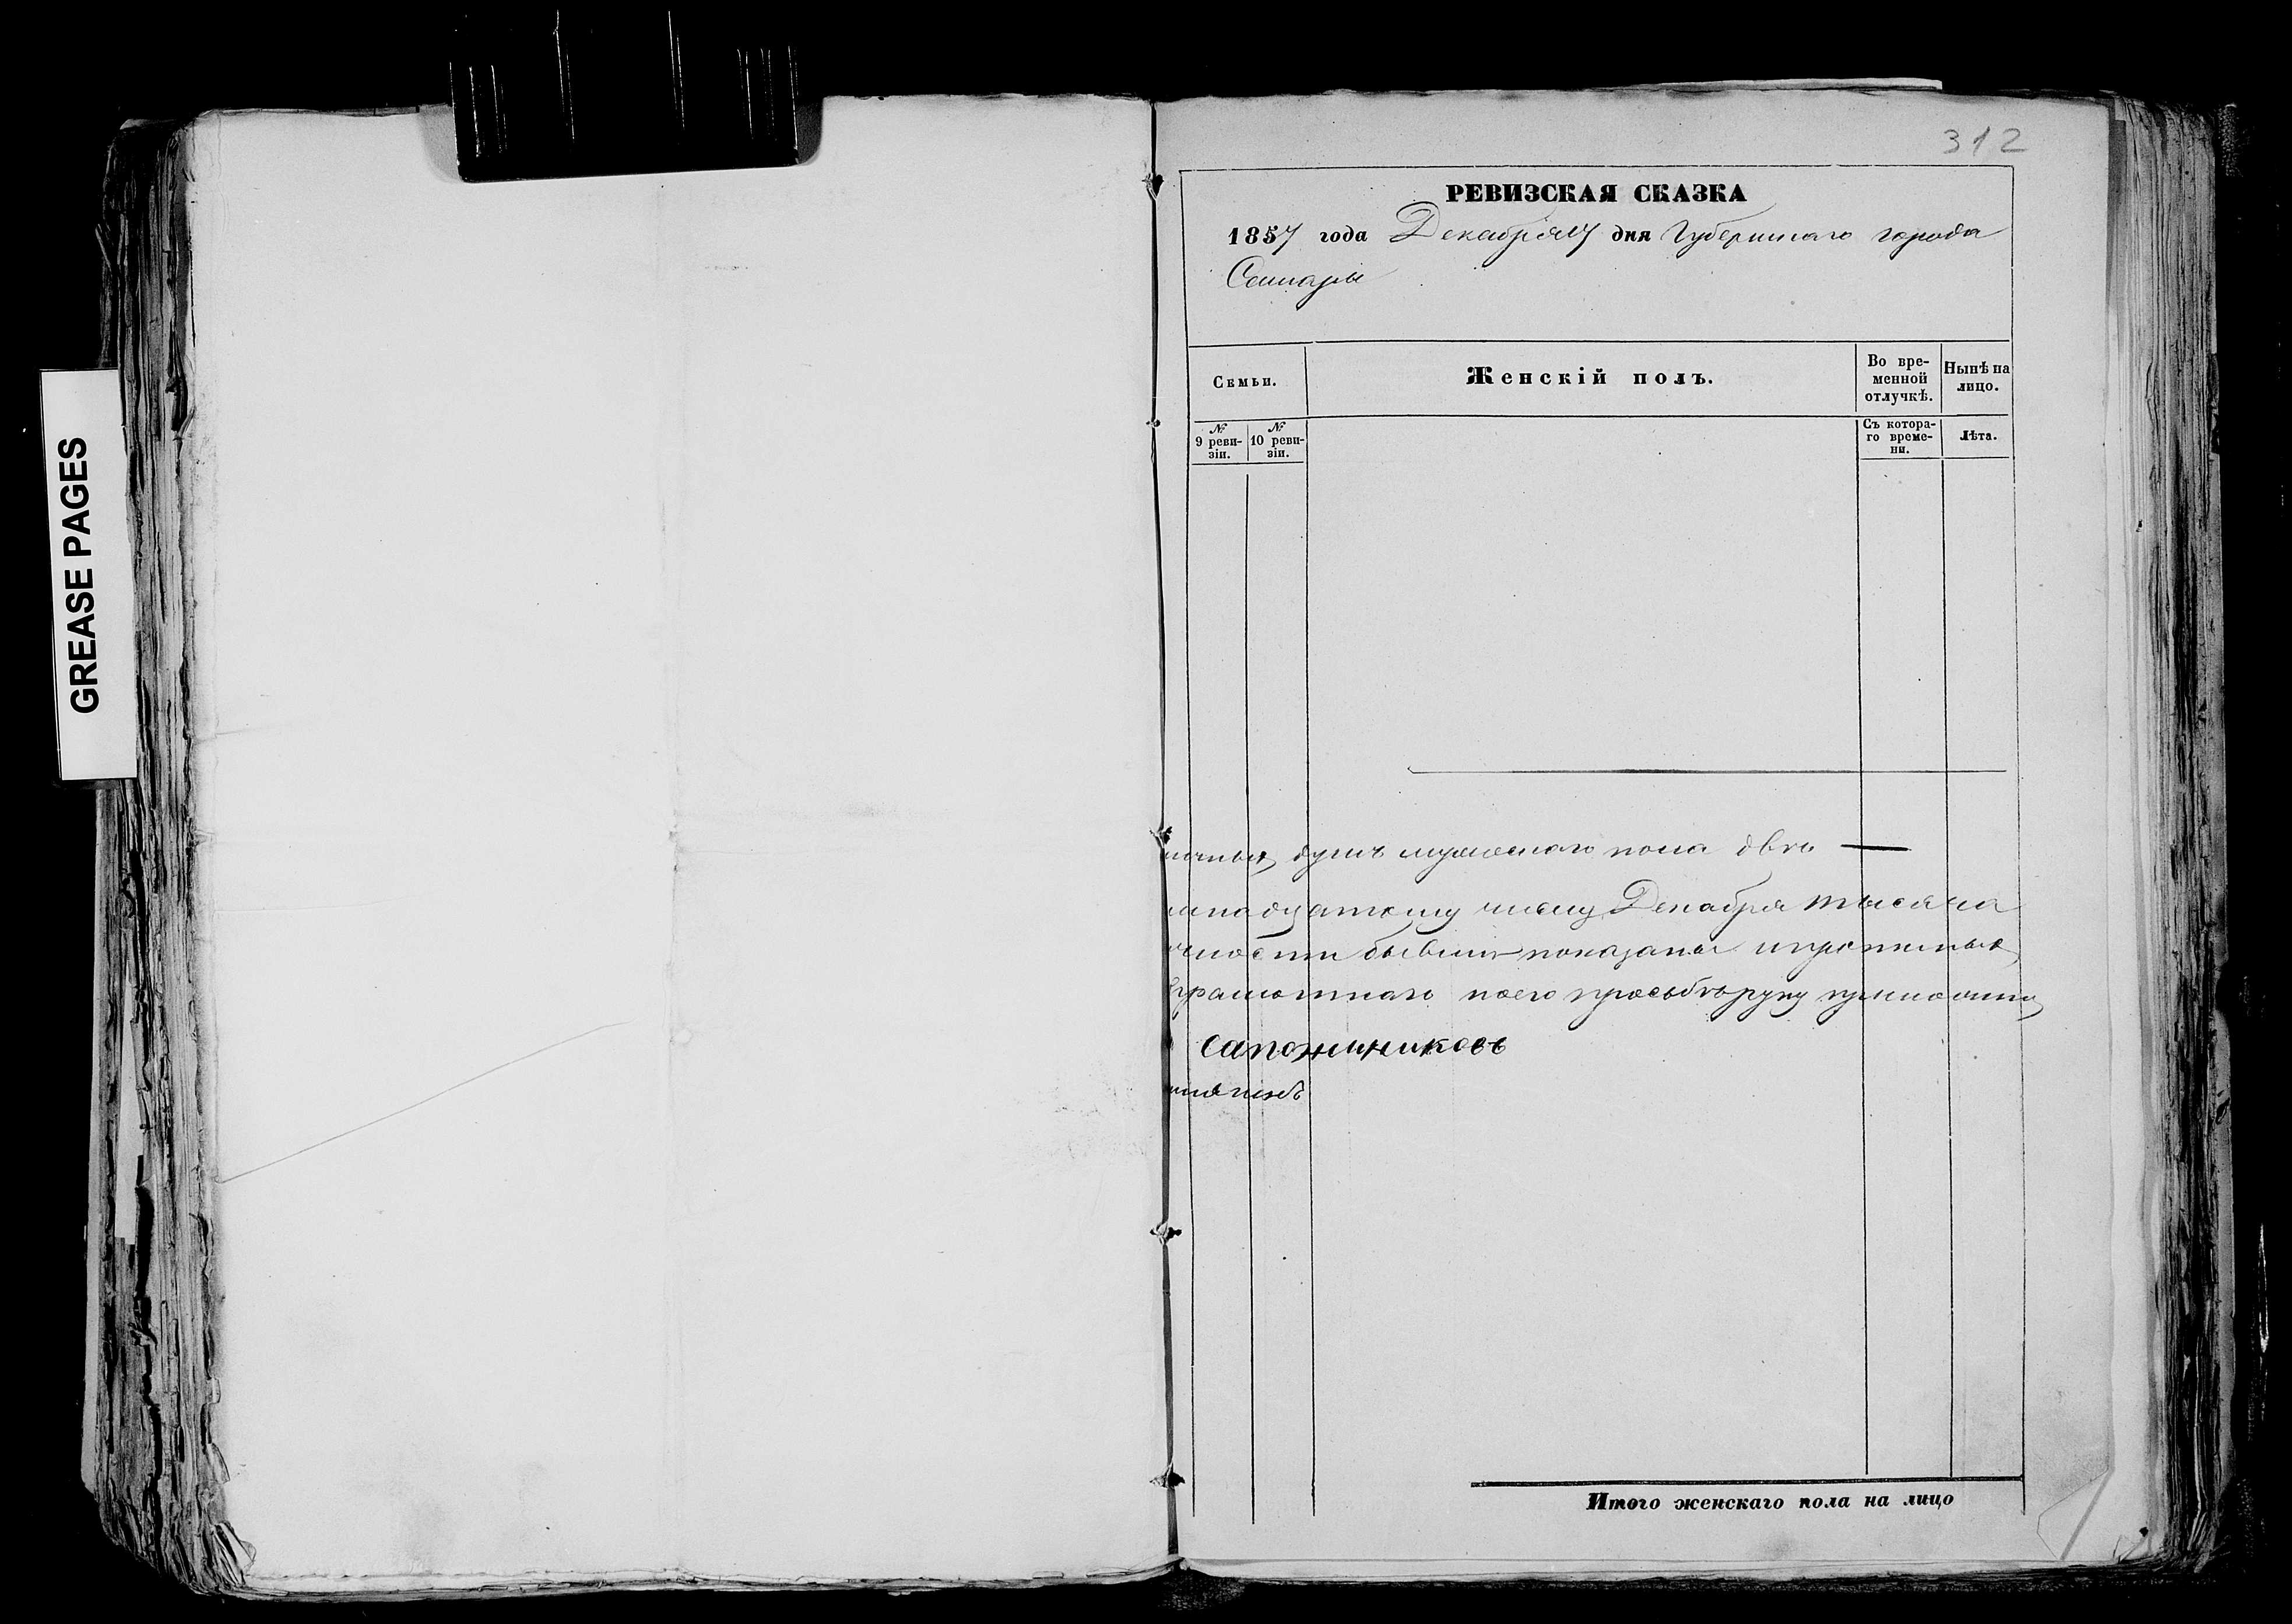 GREASE PAGES
312
РЕВИЗСКАЯ СКАЗКА
1857 года Декабря 17 дня Губернскаго города
Самары
Семьи.
Женскій полъ.
Во вре-
менной
отлучкѣ.
Нынѣ на
лицо.
№
9 реви-
зіи.
№
10 реви-
зіи.
Съ котора-
го време-
ни.
Лѣта.
душъ мужескаго пола двѣ —
надцатому числу Декабря тысяча
бывши показаны
грамотнаго по его прозьбѣ руку приложилъ
Сапожниковъ
Итого женскаго пола на лицо